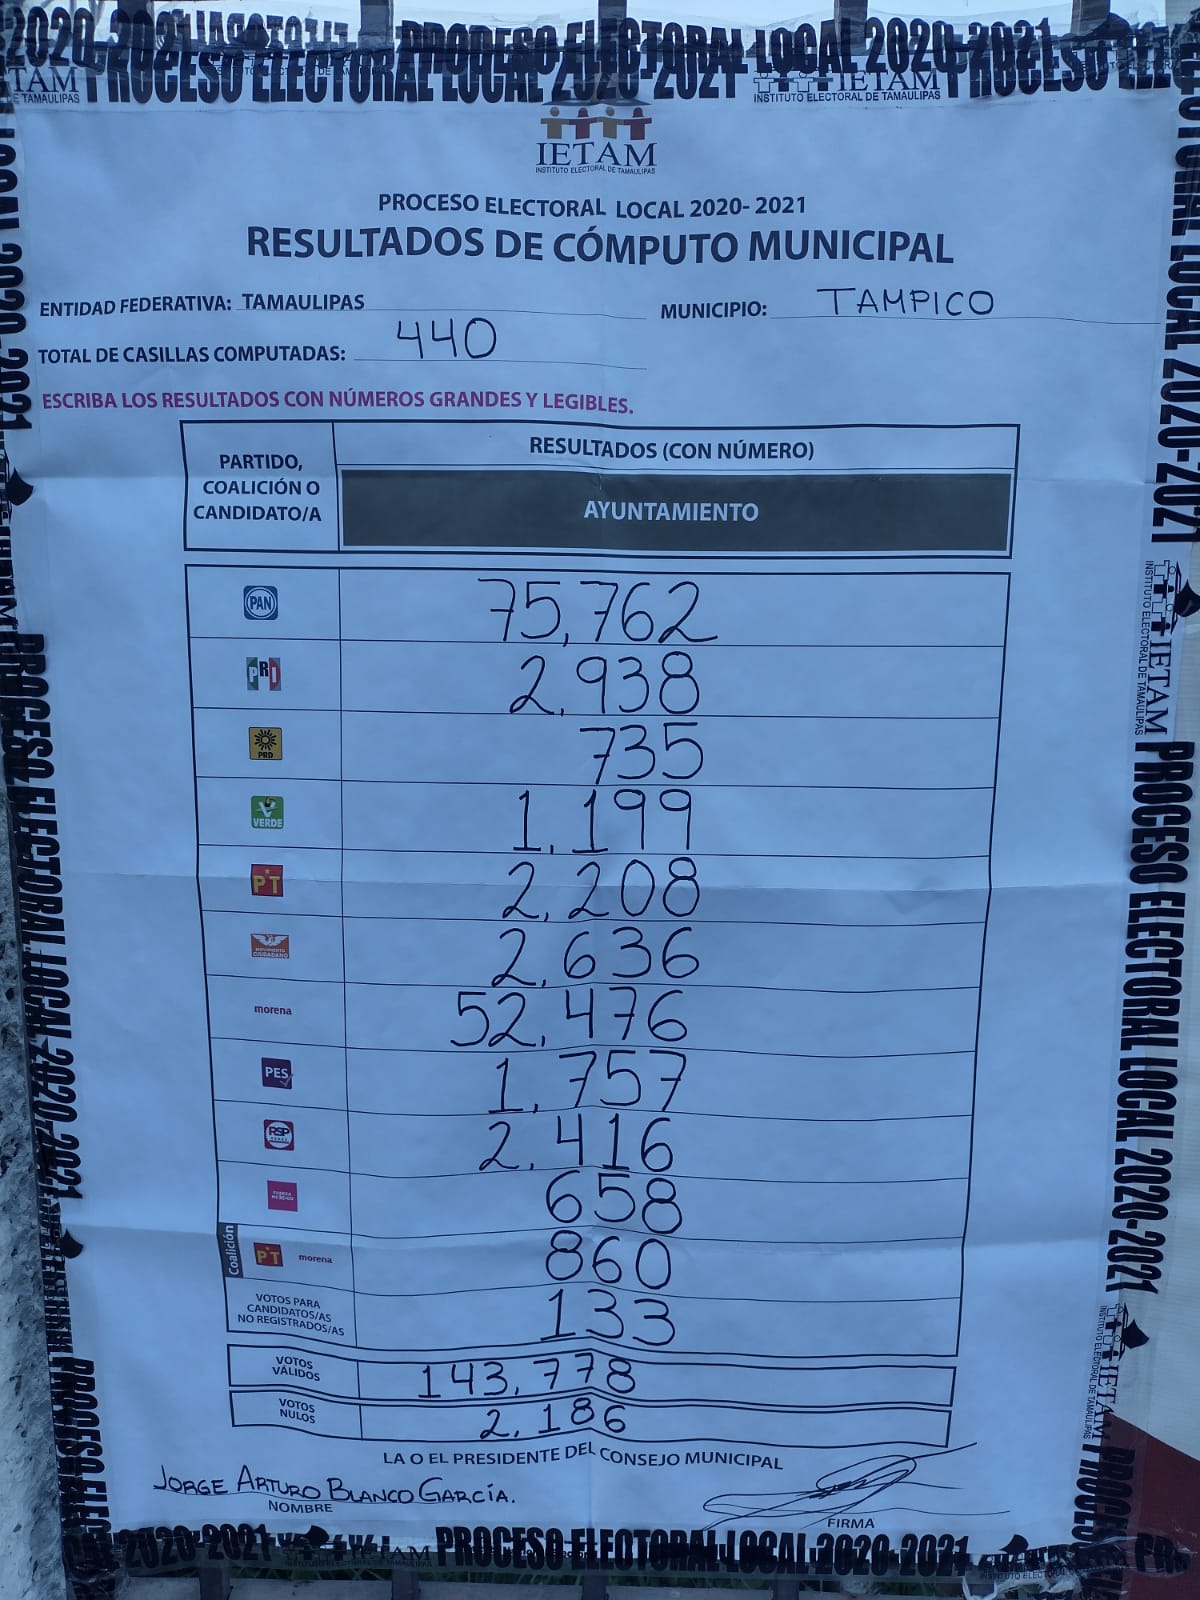 PROCESO ELECTORAL LOCAL 2020-2021
IETAM
INSTITUTO ELECTORAL DE TAMAULIPAS
IETAM
INSTITUTO ELECTORAL DE TAMAULIPAS
PROCESO ELECTORAL LOCAL 2020- 2021
RESULTADOS DE CÓMPUTO MUNICIPAL
ENTIDAD FEDERATIVA: TAMAULIPAS MUNICIPIO: TAMPICO
TOTAL DE CASILLAS COMPUTADAS: 440
ESCRIBA LOS RESULTADOS CON NÚMEROS GRANDES Y LEGIBLES.
PARTIDO, COALICIÓN O CANDIDATO/A
RESULTADOS (CON NÚMERO)
AYUNTAMIENTO
PAN 75,762
PRI 2,938
PRD 735
VERDE 1,199
PT 2,208
MOVIMIENTO CIUDADANO 2,636
morena 52,476
PES 1,757
RSP 2,416
FUERZA MÉXICO 658
Coalición PT morena 860
VOTOS PARA CANDIDATOS/AS NO REGISTRADOS/AS 133
VOTOS VÁLIDOS 143,778
VOTOS NULOS 2,186
LA O EL PRESIDENTE DEL CONSEJO MUNICIPAL
JORGE ARTURO BLANCO GARCÍA.
NOMBRE
FIRMA
PROCESO ELECTORAL LOCAL 2020-2021
IETAM
INSTITUTO ELECTORAL DE TAMAULIPAS
PROCESO ELECTORAL LOCAL 2020-2021